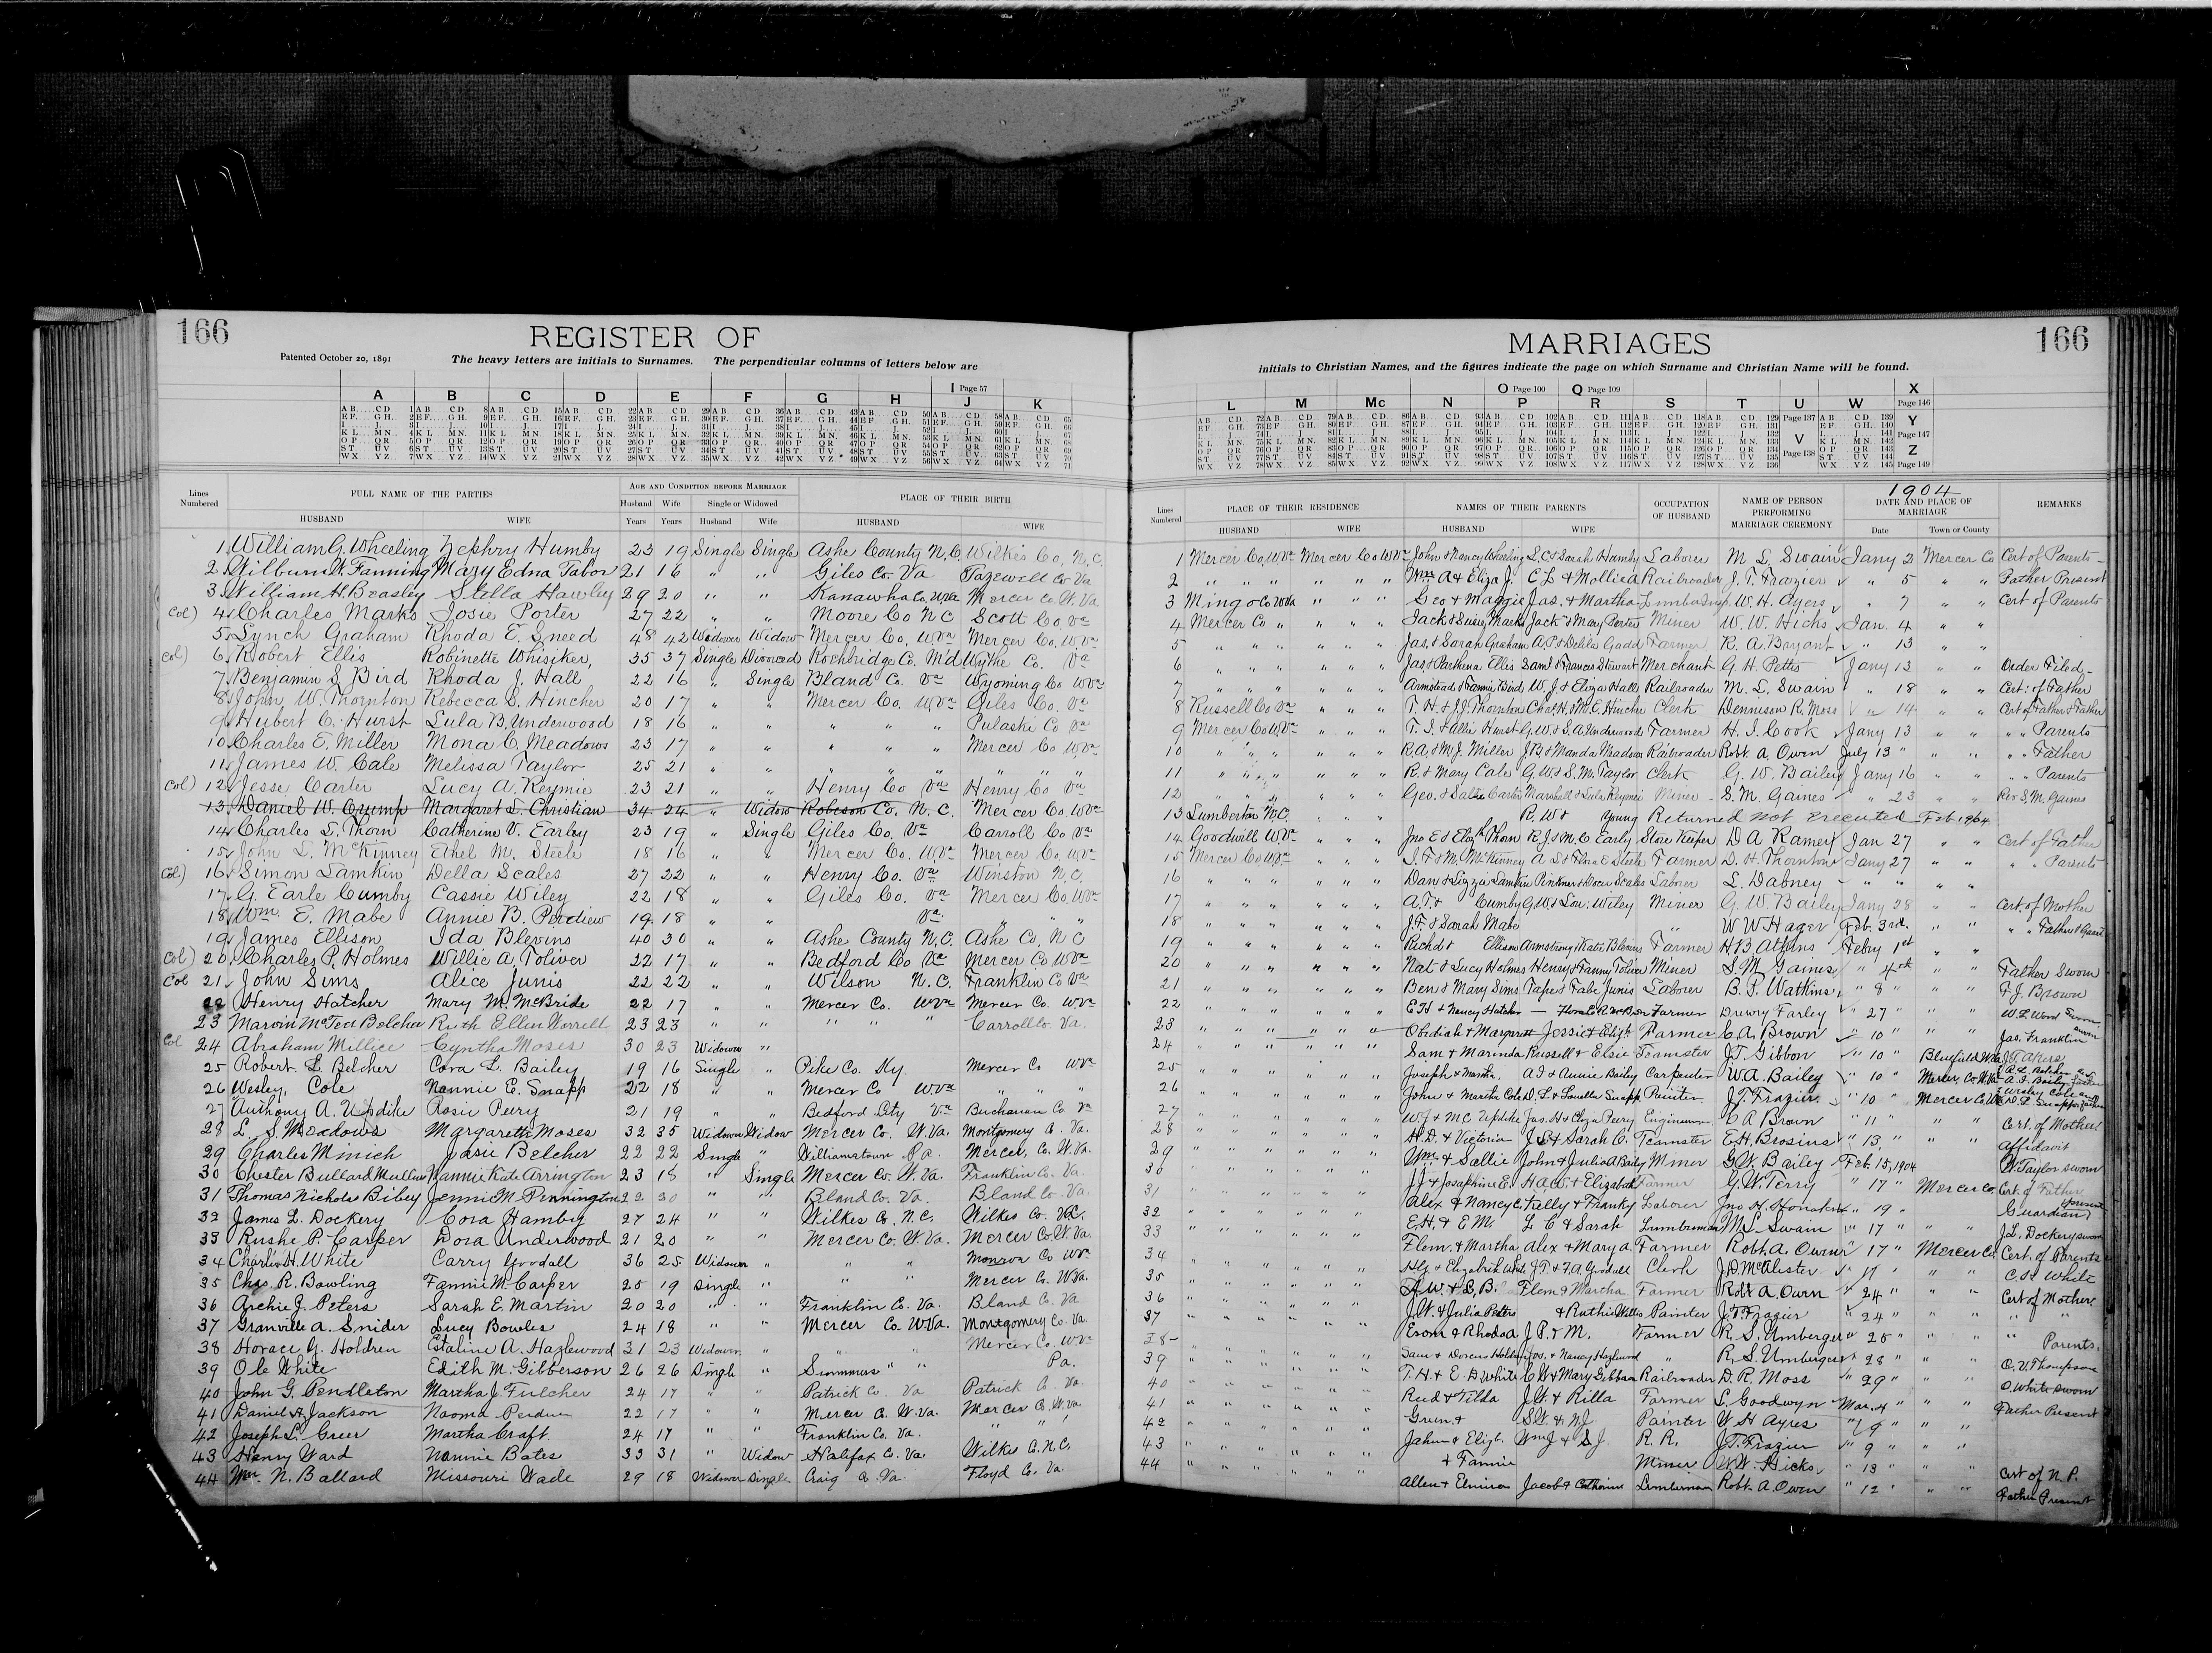 166
REGISTER OF
Patented October 20, 1891
The heavy letters are initials to Surnames. The perpendicular columns of letters below are
I Page 57
A B C D E F G H J K
Lines Numbered
FULL NAME OF THE PARTIES
AGE AND CONDITION BEFORE MARRIAGE
PLACE OF THEIR BIRTH
HUSBAND WIFE Husband Years Wife Years Single or Widowed Husband Wife HUSBAND WIFE
1 William G. Wheeling Zephry Humby 23 19 Single Single Ashe County N.C. Wilkes Co, N.C.
2 Wilburn W. Fanning Mary Edna Tabor 21 16 " " Giles Co. Va Tazewell Co Va
3 William H. Beasley Stella Hawley 29 20 " " Kanawha Co, W.Va Mercer Co. W. Va.
Col) 4 Charles Marks Josie Porter 27 22 " " Moore Co N C Scott Co, Va
5 Lynch Graham Rhoda E. Sneed 48 42 Widower Widow Mercer Co. W.Va Mercer Co. W.Va
Col) 6 Robert Ellis Robinette Whisiker, 35 37 Single Divorced Rockbridge Co. M'd Wythe Co. Va
7 Benjamin S. Bird Rhoda J. Hall 22 16 " Single Bland Co. Va Wyoming Co W.Va
8 John W. Thornton Rebecca S. Hincher 20 17 " " Mercer Co. W.Va Giles Co. Va
9 Hubert C. Hurst Lula B. Underwood 18 16 " " " " " Pulaski Co Va
10 Charles E. Miller Mona C. Meadows 23 17 " " " " " Mercer Co W.Va
11 James W. Cale Melissa Taylor 25 21 " " " " " " " "
Col) 12 Jesse Carter Lucy A. Reymie 23 21 " " Henry Co Va Henry Co Va
13 Daniel W. Crump Margaret L. Christian 34 24 " Widow Robeson Co. N. C. Mercer Co. W.Va
14 Charles T. Thorn Catherine V. Earley 23 19 " Single Giles Co. Va Carroll Co Va
15 John L. McKinney Ethel M. Steele 18 16 " " Mercer Co. W.Va Mercer Co, W.Va
Col) 16 Simon Lamkin Della Scales 27 22 " " Henry Co. Va Winston N.C.
17 G. Earle Cumby Cassie Wiley 22 18 " " Giles Co. Va Mercer Co. W.Va
18 Wm. E. Mabe Annie B. Perdiew 19 18 " " Va. " " "
19 James Ellison Ida Blevins 40 30 " " Ashe County N.C. Ashe Co, N C
Col) 20 Charles P. Holmes Willie A. Toliver 22 17 " " Bedford Co Va Mercer Co W.Va
Col 21 John Sims Alice Junis 22 22 " " Wilson N.C. Franklin Co Va
22 Henry Hatcher Mary M. McBride 22 17 " " Mercer Co. W.Va Mercer Co. W.Va
23 Marvin McTed Belcher Ruth Ellen Worrell 23 23 " " " " " Carroll Co. Va.
Col 24 Abraham Millice Cyntha Moses 30 23 Widower "
25 Robert L. Belcher Cora L. Bailey 19 16 Single " Pike Co. Ky. Mercer Co W.Va
26 Wesley Cole Nannie E. Snapp 22 18 " " Mercer Co W.Va " " "
27 Anthony A. Updike Rosie Perry 21 19 " " Bedford City Va Buchanan Co Va
28 L. S. Meadows Margarette Moses 32 35 Widower Widow Mercer Co. W.Va. Montgomery Co. Va.
29 Charles Minich Josie Belcher 22 22 Single " Williamstown Pa. Mercer Co. W.Va.
30 Chester Bullard Mullins Nannie Kate Arrington 23 18 " Single Mercer Co. W.Va. Franklin Co. Va.
31 Thomas Nicholas Bibey Jennie M. Pennington 22 20 " " Bland Co. Va. Bland Co. Va.
32 James L. Dockery Cora Hamby 27 24 " " Wilkes Co. N.C. Wilkes Co. N.C.
33 Rushe P. Carper Dora Underwood 21 20 " " Mercer Co. W.Va. Mercer Co. W.Va.
34 Charles H. White Carry Goodall 36 25 Widower " " " Monroe Co W.Va
35 Chas. R. Bowling Fannie M. Carper 25 19 Single " " " Mercer Co. W.Va.
36 Archie J. Peters Sarah E. Martin 20 20 " " Franklin Co. Va. Bland Co. Va
37 Granville A. Snider Lucy Bowles 24 18 " " Mercer Co. W.Va. Montgomery Co. Va.
38 Horace G. Holdren Estaline A. Hazlewood 31 23 Widower " " " Mercer Co. W.Va
39 Ole White Edith M. Gibberson 26 26 Single " Summers " " Pa.
40 John G. Pendleton Martha J. Fulcher 24 17 " " Patrick Co. Va Patrick Co. Va.
41 Daniel A. Jackson Naoma Perdue 22 17 " " Mercer Co. W.Va. Mercer Co. W.Va.
42 Joseph L. Greer Martha Craft 24 17 " " Franklin Co. Va. " "
43 Henry Ward Nannie Bates 33 31 " Widow Halifax Co. Va Wilkes Co. N.C.
44 Wm. N. Ballard Missouri Wade 29 18 Widower Single Craig Co. Va. Floyd Co. Va.
166
MARRIAGES
initials to Christian Names, and the figures indicate the page on which Surname and Christian Name will be found.
O Page 100 Q Page 109 X Page 146
L M Mc N P R S T U W Y Z
Page 137 V Page 138 Page 147 Page 149
1904
Lines Numbered
PLACE OF THEIR RESIDENCE
NAMES OF THEIR PARENTS
OCCUPATION OF HUSBAND
NAME OF PERSON PERFORMING MARRIAGE CEREMONY
DATE AND PLACE OF MARRIAGE
REMARKS
HUSBAND WIFE HUSBAND WIFE Date Town or County
1 Mercer Co, W.Va Mercer Co W.Va John & Nancy Wheeling L.C. & Sarah Humby Laborer M. L. Swain Jany 2 Mercer Co Cert of Parents
2 " " " " " " Wm. A & Eliza J. C L & Mollie A Railroader J. T. Frazier " 5 " " Father Present
3 Mingo Co W.Va " " " Geo & Maggie Jas. & Martha Lumber Insp. W. H. Ayers " 7 " " Cert of Parents
4 Mercer Co " " " " Jack & Susie Marks Jack & Mary Porter Miner W. W. Hicks Jan. 4 " "
5 " " " " " " Jas. & Sarah Graham A.P. & Delila Gadd Farmer R. A. Bryant " 13 " "
6 " " " " " " Jas & Parthena Ellis Saml & Francis Stewart Merchant G H Petts Jany 13 " " Order Filed
7 " " " " " " Armstead & Fannie Bird W. J. & Eliza Hall Railroader M. L. Swain " 18 " " Cert: of Father
8 Russell Co Va " " " T. H. & J.J. Thornton Chas. H. & M.E. Hincher Clerk Dennison R. Moss " 14 " " Cert of Father & Father
9 Mercer Co W.Va " " " T. S. & Allie Hurst G.W. & S.A. Underwood Farmer H. I. Cook Jany 13 " " " " Parents
10 " " " " " " R.A. & M.J. Miller J.B. & Manda Meadows Railroader Robt. A. Owen July 13 " " " " " Father
11 " " " " " " R. & Mary Cale G.W. & S.M. Taylor Clerk G. W. Bailey Jany 16 " " " " Parents
12 " " " " " " Geo. & Salie Carter Marshall & Lula Reymie Miner S. M. Gaines " 23 " " Rev S. M. Gaines
13 Lumberton N.C. " " " R. W & Young Returned not Executed Feb 1904
14 Goodwill W.Va " " " Jno E & Elizth Thorn R J & M. C Early Store Keeper D A Ramey Jan 27 " " Cert of Father
15 Mercer Co W.Va " " " McKinney Farmer D. H. Thornton Jany 27 " " " " Parents
16 " " " " " " Dan & Lizzie Lamkin Pinkney & Docia Scales Laborer L. Dabney " " " "
17 " " " " " " A.T. & Cumby G.W. & Lou: Wiley Miner G. W. Bailey Jany 28 " " Cert. of Mother
18 " " " " " " J.F. & Sarah Mabe " W W Hager Feb. 3rd. " " " " Father & Guard
19 " " " " " " Richd & Ellison Armstrong & Katie Blevins Farmer H B Atkins Feby 1st " "
20 " " " " " " Nat & Lucy Holmes Henry & Fanny Toliver Miner S. M. Gaines " 4th " " Father Sworn
21 " " " " " " Ben & Mary Sims Junis Laborer B. P. Watkins " 8 " " " F. J. Brown
22 " " " " " " E H & Nancy Hatcher Farmer Drewry Farley " 27 " " " W. L. Wood Sworn
23 " " " " " " Obediah & Margarett Jessie & Eliz. Farmer C. A. Brown " 10 " " " Jas. Franklin sworn
24 " " " " " " Sam & Marinda Russell & Elsie Teamster J. T. Gibbon " 10 " Bluefield W.Va J.T. Akers
25 " " " " " " Joseph & Martha. A I & Annie Bailey Carpenter W. A. Bailey " 10 " Mercer Co. W.Va R. L. Belcher and A. I. Bailey
26 " " " " " " John & Martha Cole D. L. & Louella Snapp Painter J. T. Frazier " 10 " Mercer Co. W.Va Wesley Cole and D. L. Snapp
27 " " " " " " W J & M C Updike Jas. H & Eliza Perry Engineman C A Brown " 11 " " " Cert. of Mother
28 " " " " " " H. D. & Victoria J. S. & Sarah C. Teamster E. H. Brosius " 13, " " " Affidavit
29 " " " " " " Wm. & Sallie John & Julia A Baily Miner G. W. Bailey Feb. 15, 1904 W. Taylor sworn
30 " " " " " " J J & Josephine E. H A W. & Elizabeth Farmer G. W. Terry " 17 " Mercer Co Cert. of Father
31 " " " " " " Alex & Nancy C. Kelly & Franky Laborer Jno H. Honaker " 19 " Guardian present
32 " " " " " " E. H. & E M. L. C & Sarah Lumberman M. L. Swain " 17 " " " J. L. Dockery sworn
33 " " " " " " Flem. & Martha Alex & Mary A. Farmer Robt. A. Owen " 17 " Mercer Co. Cert. of Parents
34 " " " " " " & Elizabeth White J. T. & F. A Goodall Clerk J. D. McAlister " 17 " " " C. H. White
35 " " " " " " A W. & L. B. Flem & Martha Farmer Robt A. Owen " 24 " " " Cert of Mother
36 " " " " " " J. W. & Julia Peters & Ruthie Painter J. T. Frazier " 24 " " " " "
37 " " " " " " & Rhoda A J P. & M. Farmer R. S. Umberger " 25 " " " " Parents
38 " " " " " " Sam & Dorcas Holdren Jas. & Nancy Hazlewood " R. S. Umberger " 28 " " " O. V. Thompson
39 " " " " " " T. H. & E. D White C W & Mary Gibberson Railroader D. R. Moss " 29 " " " O. White sworn
40 " " " " " " Reed & Tilda J. W. & Rilla Farmer L. Goodwyn Mar. 4 " " " Father Present
41 " " " " " " Green & S.W. & N.J. Painter W H Ayres " 9 " " "
42 " " " " " " & Eliz. Wm J & S. J. R. R. J. T. Frazier " 9 " " "
43 " " " " " " & Fannie Miner W. W. Hicks " 13 " " " Cert of N. P.
44 " " " " " " Allen & Elmina Jacob & Catharine Lumberman Robt. A. Owen " 12 " " " Father Present